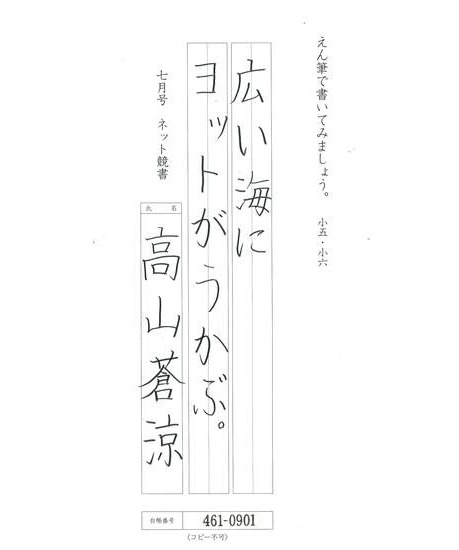 えん筆で書いてみましょう。 小五・小六
広い海に
ヨットがうかぶ。
七月号 ネット競書
氏 名
高山蒼涼
台帳番号 461-0901
(コピー不可)